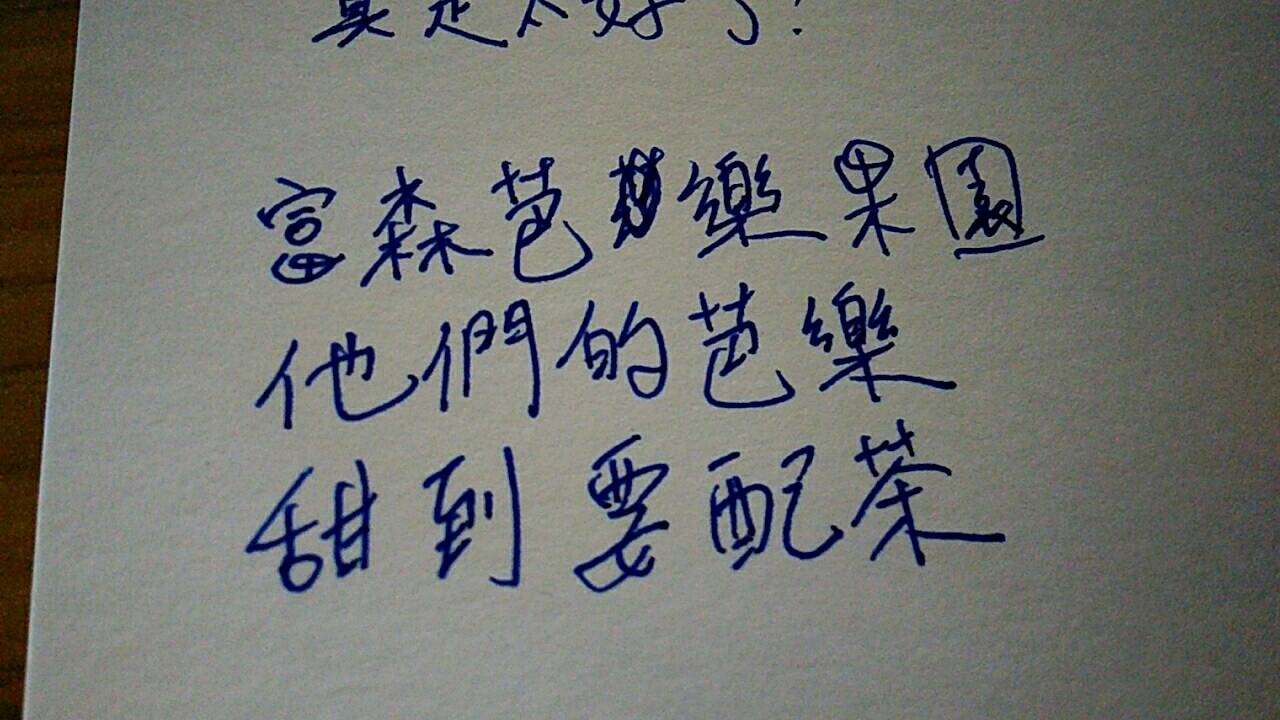 真是太好了!
富森芭樂果園
他們的芭樂
甜到要配茶